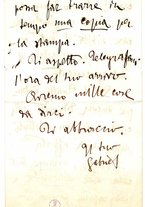 possa far trarre in
tempo una copia per
la stampa.
Ti aspetto. Telegrafami
l'ora del tuo arrivo.
Avremo mille cose
da dirci.
Ti abbraccio.
Il tuo
Gabriel